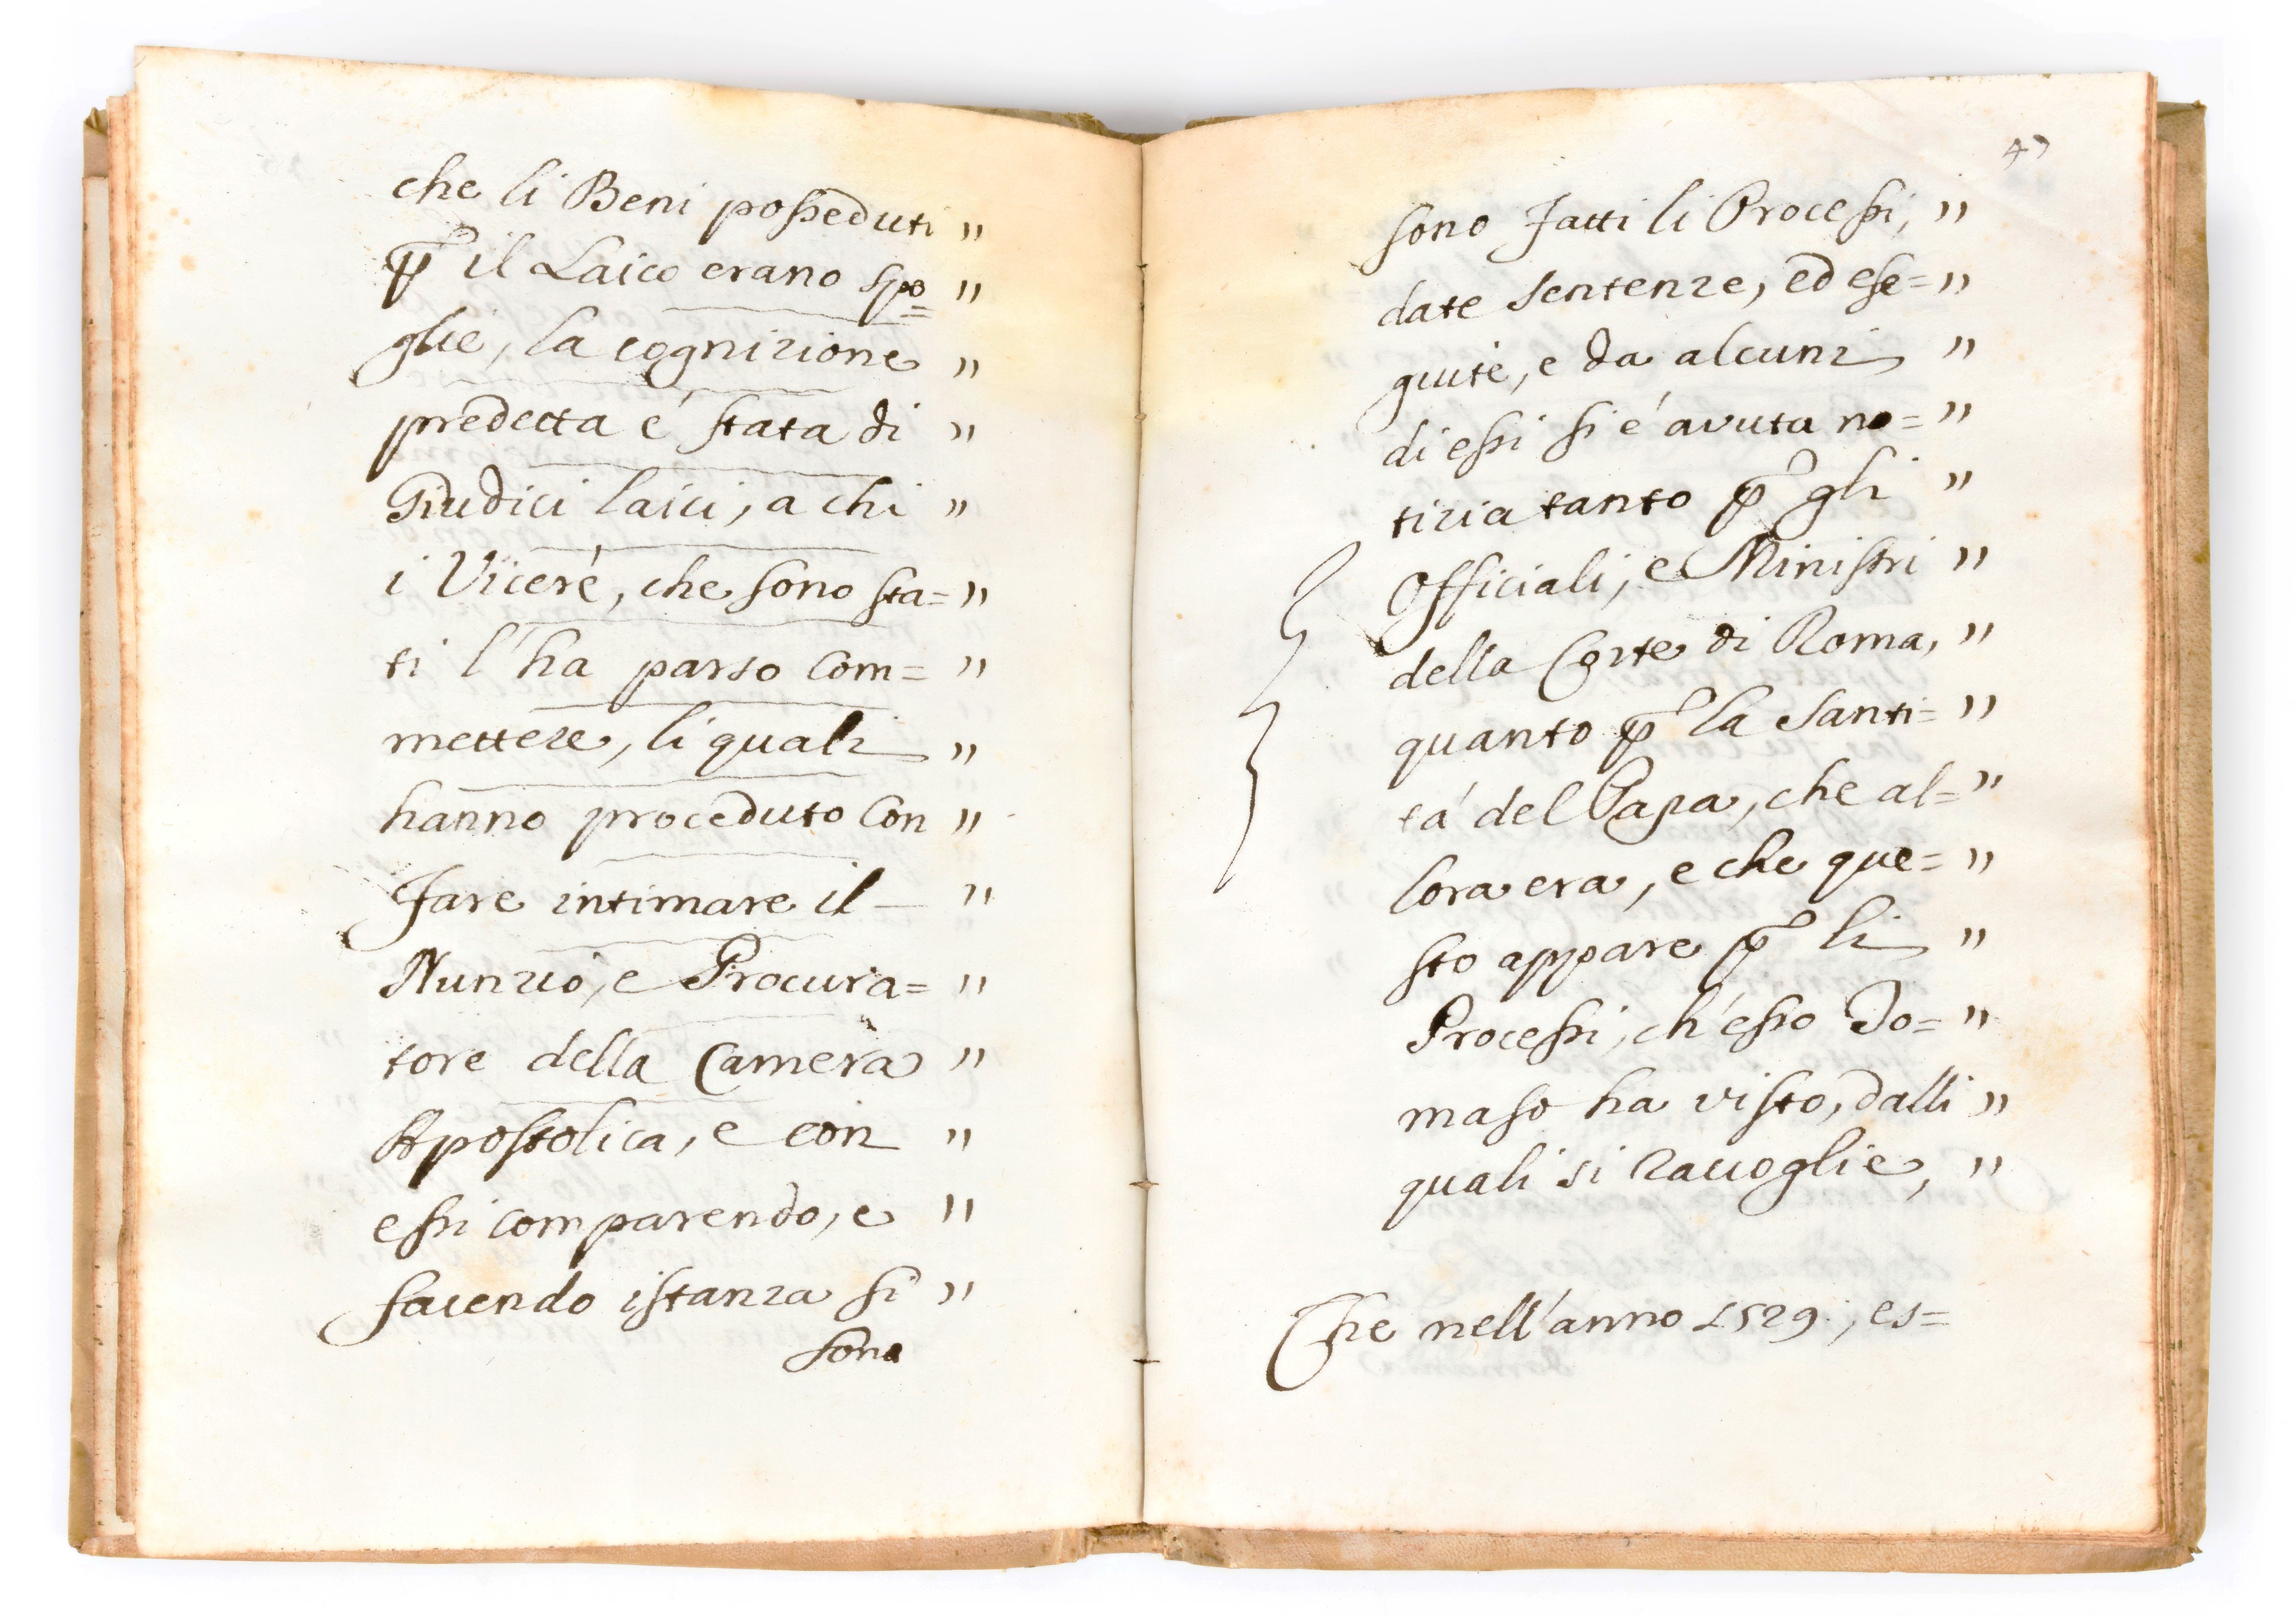 che li Beni posseduti "
ꝑ il Laico erano spo= "
glie, la cognizione "
predetta é stata di "
Giudici laici, a chi "
i Viceré, che sono sta= "
ti l'ha parso com= "
mettere, li quali "
hanno proceduto con "
fare intimare il — "
Nunzio, e Procura= "
tore della Camera "
Apostolica, e con "
essi comparendo, e "
facendo istanza si "
sono
47
sono fatti li Processi, "
date sentenze, ed ese= "
guite, e da alcuni "
di essi si é avuta no= "
tizia tanto ꝑ gli "
Officiali, e Ministri "
della Corte di Roma, "
quanto ꝑ la Santi= "
tá del Papa, che al= "
lora era, e che que= "
sto appare ꝑ li "
Processi, ch'esso To= "
maso ha visto, dalli "
quali si raccoglie, "
Che nell'anno 1529., es=